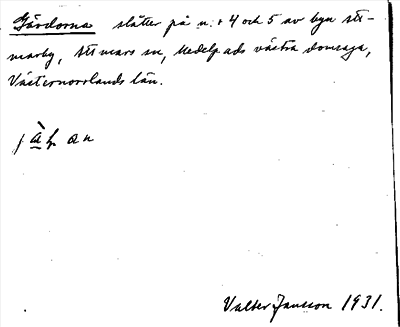 Gärdorna slätter på n:r 4 och 5 av byn Att-
marby, Attmars sn, Medelpads västra domsaga,
Västernorrlands län.
Valter Jansson 1931.